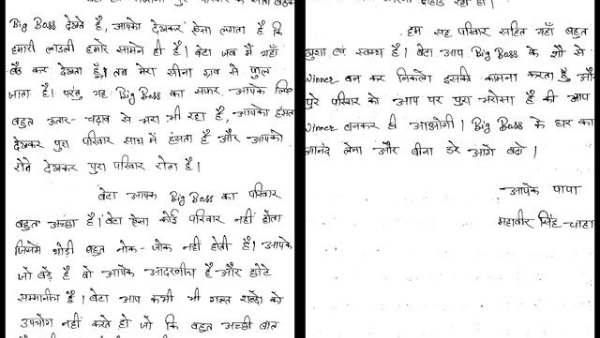 Big Boss देखते है, आपको देखकर ऐसा लगता है कि
हमारी लाडली हमारे सामने ही है। बेटा जब मैं यहाँ
बैठ कर देखता हूँ, तब मेरा सीना गर्व से फूल
जाता है। परंतु यह Big Boss का सफर आपके लिए
बहुत उतार-चढ़ाव से भरा भी रहा है, आपको हंसता
देखकर पुरा परिवार साथ में हंसता है और आपको
रोते देखकर पुरा परिवार रोता है।
बेटा आपका Big Boss का परिवार
बहुत अच्छा है। बेटा ऐसा कोई परिवार नहीं होता
जिसमें थोड़ी बहुत नोक-जोक नहीं होती है। आपके
जो बड़े है वो आपके आदरणीय है और छोटे
सम्मानीय है। बेटा आप कभी भी गलत शब्दों का
उपयोग नहीं करते हो जो कि बहुत अच्छी बात
हम सह परिवार सहित यहाँ बहुत
खुश एवं स्वस्थ है। बेटा आप Big Boss के शो से
winner बन कर निकलो इसकी कामना करता हूँ और
पुरे परिवार को आप पर पुरा भरोसा है की आप
winner बनकर ही आओगी। Big Boss के घर का
आनंद लेना और बीना डरे आगे बढो।
आपके पापा
महावीर सिंह-चाहर